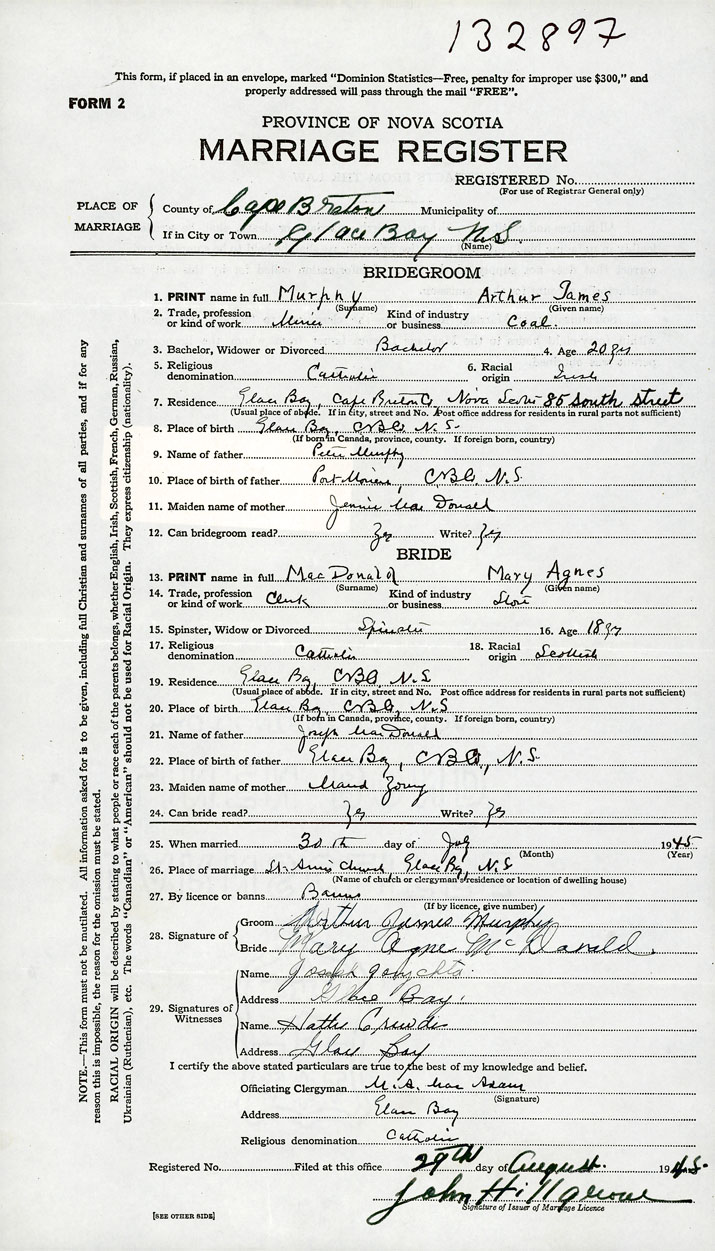 132897
This form, if placed in an envelope, marked "Dominion Statistics—Free, penalty for improper use $300," and
properly addressed will pass through the mail "FREE".
FORM 2
PROVINCE OF NOVA SCOTIA
MARRIAGE REGISTER
REGISTERED No.
(For use of Registrar General only)
PLACE OF MARRIAGE
County of Cape Breton Municipality of
If in City or Town Glace Bay N.S.
(Name)
BRIDEGROOM
1. PRINT name in full Murphy Arthur James
(Surname) (Given name)
2. Trade, profession or kind of work Miner Kind of industry or business Coal.
3. Bachelor, Widower or Divorced Bachelor 4. Age 20 yrs
5. Religious denomination Catholic 6. Racial origin Irish
7. Residence Glace Bay, Cape Breton Co, Nova Scotia 85 South Street
(Usual place of abode. If in city, street and No. Post office address for residents in rural parts not sufficient)
8. Place of birth Glace Bay, CBCo N.S.
(If born in Canada, province, county. If foreign born, country)
9. Name of father Peter Murphy
10. Place of birth of father Port Morien, CBCo. N.S.
11. Maiden name of mother Jennie MacDonald
12. Can bridegroom read? Yes Write? Yes
BRIDE
13. PRINT name in full MacDonald Mary Agnes
(Surname) (Given name)
14. Trade, profession or kind of work Clerk Kind of industry or business Store
15. Spinster, Widow or Divorced Spinster 16. Age 18 yr
17. Religious denomination Catholic 18. Racial origin Scottish
19. Residence Glace Bay, CBCo, N.S.
(Usual place of abode. If in city, street and No. Post office address for residents in rural parts not sufficient)
20. Place of birth Glace Bay, CBCo, N.S
(If born in Canada, province, county. If foreign born, country)
21. Name of father Joseph MacDonald
22. Place of birth of father Glace Bay, CBCo., N.S.
23. Maiden name of mother Maud Young
24. Can bride read? Yes Write? Yes
25. When married 30th day of July 1945
(Month) (Year)
26. Place of marriage St. Anns Church, Glace Bay, N.S
(Name of church or clergyman's residence or location of dwelling house)
27. By licence or banns Banns
(If by licence, give number)
28. Signature of
Groom Arthur James Murphy
Bride Mary Agne McDonald.
29. Signatures of Witnesses
Name Joseph
Address Glace Bay.
Name Hattie
Address Glace Bay
I certify the above stated particulars are true to the best of my knowledge and belief.
Officiating Clergyman M.A. MacAdam
(Signature)
Address Glace Bay
Religious denomination Catholic
Registered No. Filed at this office 29th day of August. 1945.
John Hillgrove
Signature of Issuer of Marriage Licence
[SEE OTHER SIDE]
NOTE.—This form must not be mutilated. All information asked for is to be given, including full Christian and surnames of all parties, and if for any
reason this is impossible, the reason for the omission must be stated.
RACIAL ORIGIN will be described by stating to what people or race each of the parents belongs, whether English, Irish, Scottish, French, German, Russian,
Ukrainian (Ruthenian), etc. The words "Canadian" or "American" should not be used for Racial Origin. They express citizenship (nationality).